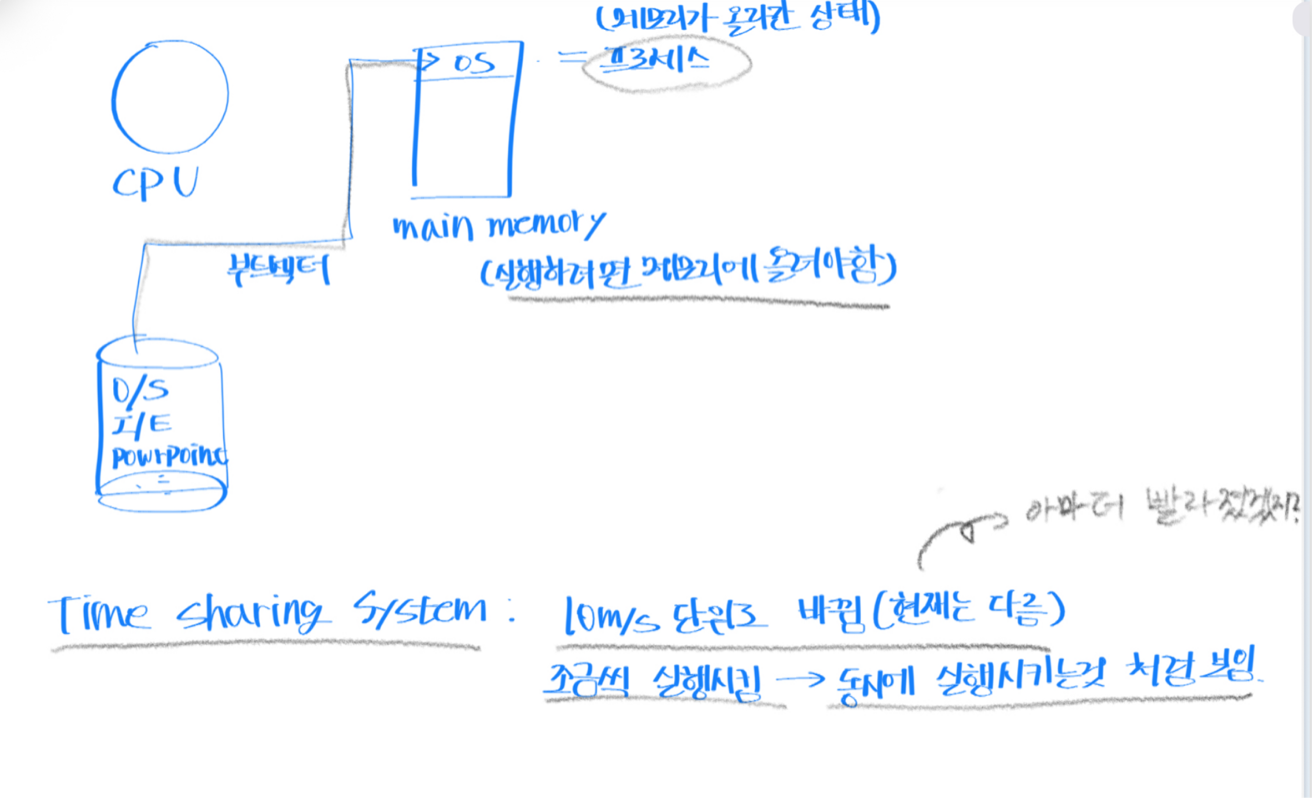 (메모리가 올라간 상태)
OS = 프로세스
CPU
main memory
부트섹터
(실행하려면 메모리에 올려야함)
O/S
I/E
powrpoint
아마 더 빨라졌겠지?
Time sharing System : 10m/s 단위로 바뀜 (현재는 다름)
조금씩 실행시킴 → 동시에 실행시키는것 처럼 보임.